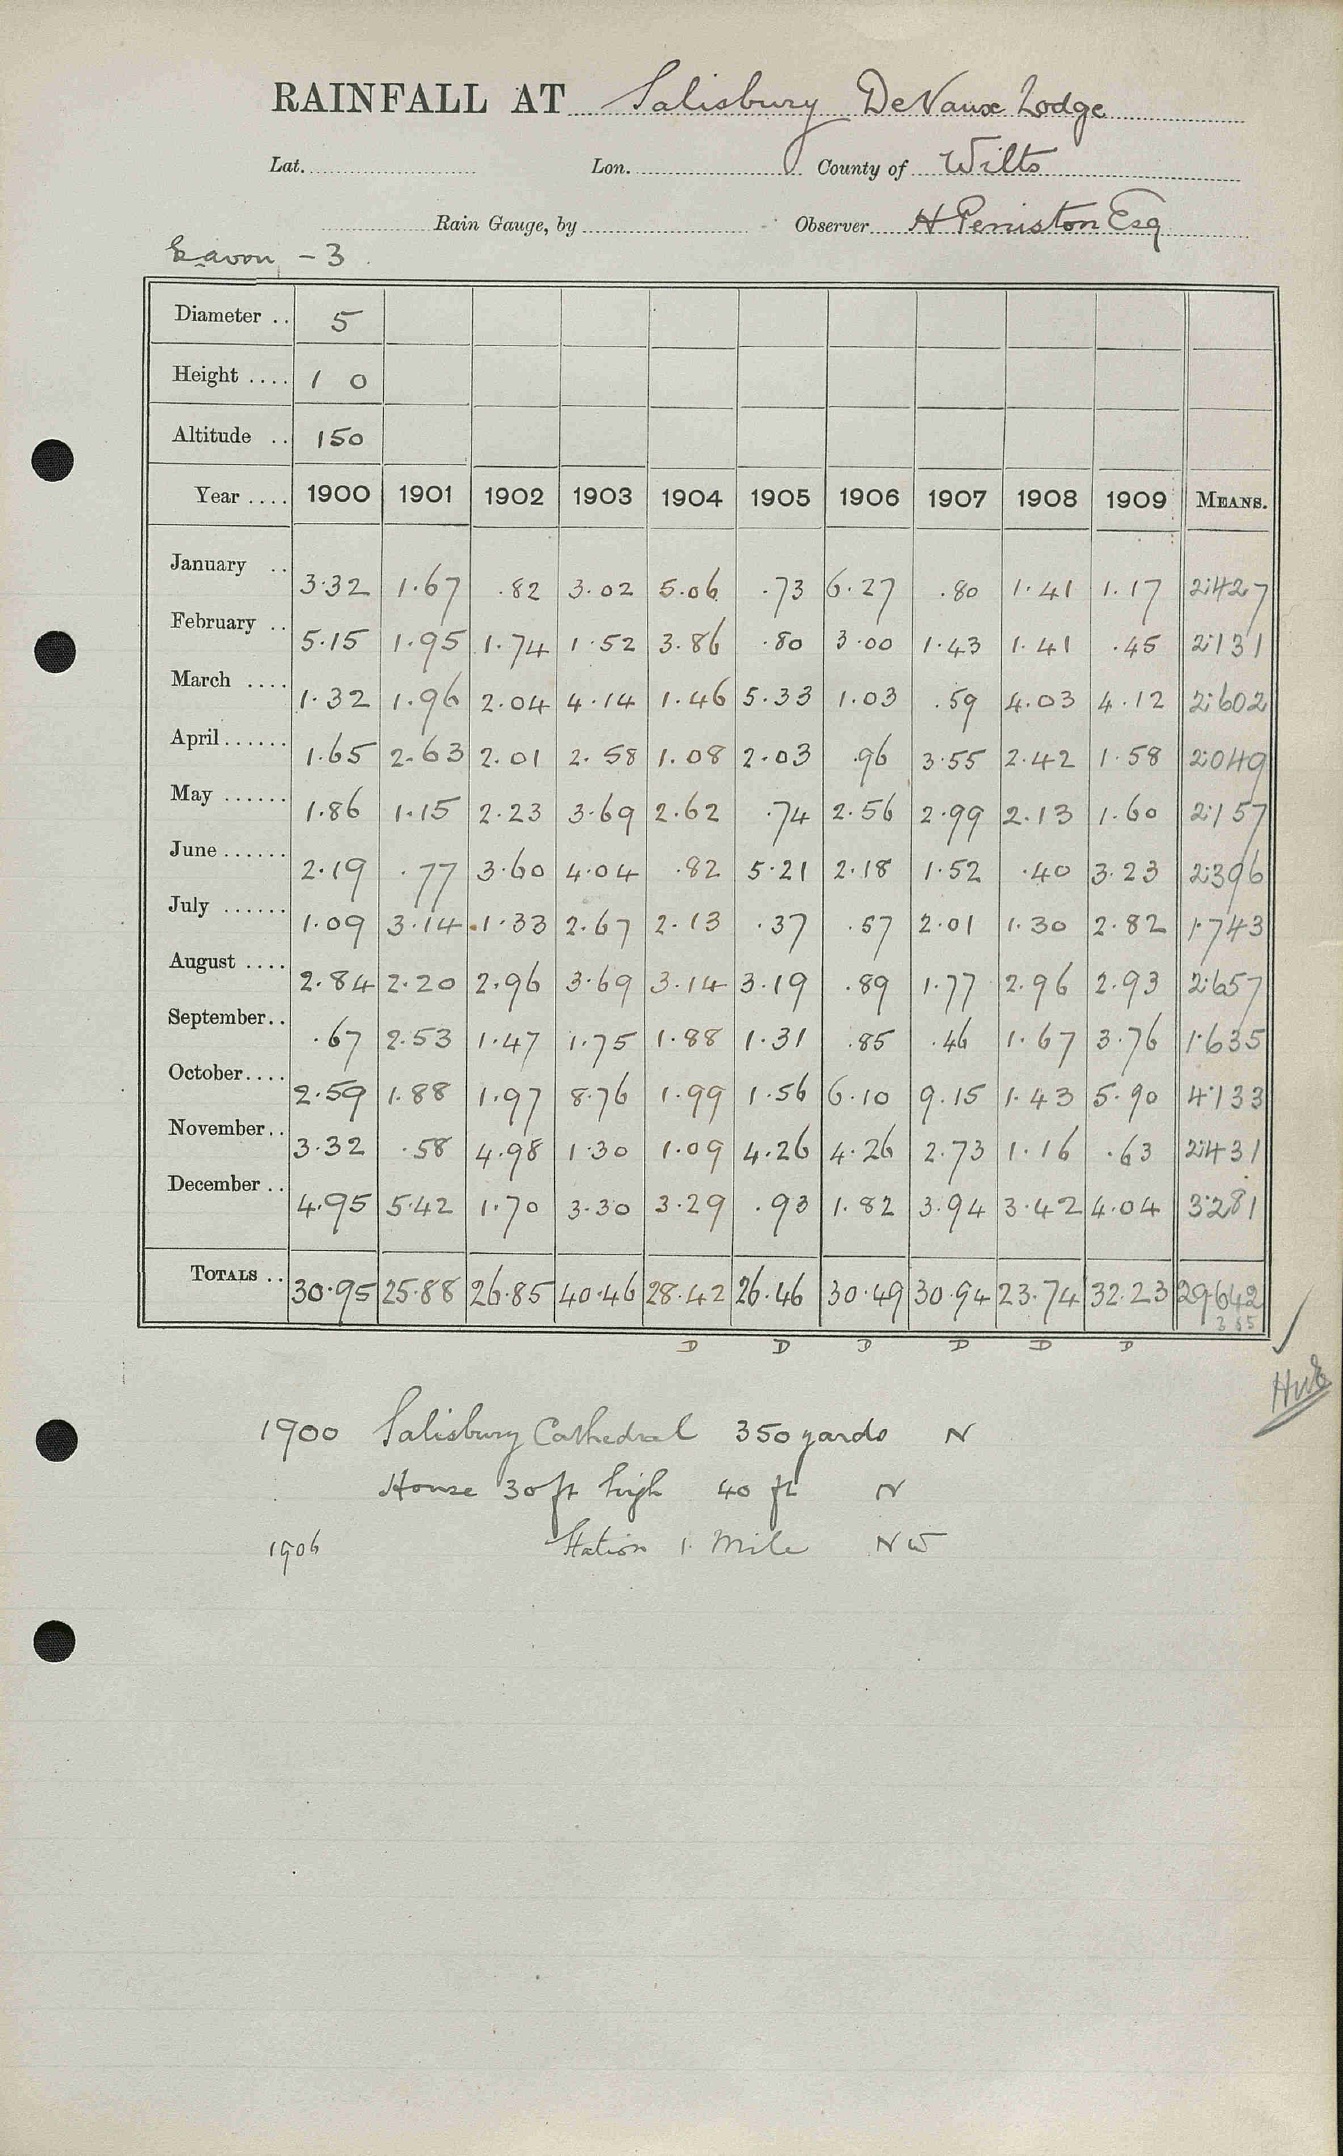 RAINFALL AT Salisbury De Vaux Lodge
Lat. Lon. County of Wilts
Rain Gauge, by Observer H Penniston Esq
E avon - 3
Diameter .. 5
Height .... 1 0
Altitude .. 150
Year .... 1900 1901 1902 1903 1904 1905 1906 1907 1908 1909 MEANS.
January .. 3.32 1.67 .82 3.02 5.06 .73 6.27 .80 1.41 1.17 2.427
February .. 5.15 1.95 1.74 1.52 3.86 .80 3.00 1.43 1.41 .45 2.131
March .... 1.32 1.96 2.04 4.14 1.46 5.33 1.03 .59 4.03 4.12 2.602
April...... 1.65 2.63 2.01 2.58 1.08 2.03 .96 3.55 2.42 1.58 2.049
May ...... 1.86 1.15 2.23 3.69 2.62 .74 2.56 2.99 2.13 1.60 2.157
June...... 2.19 .77 3.60 4.04 .82 5.21 2.18 1.52 .40 3.23 2.396
July ...... 1.09 3.14 1.33 2.67 2.13 .37 .57 2.01 1.30 2.82 1.743
August .... 2.84 2.20 2.96 3.69 3.14 3.19 .89 1.77 2.96 2.93 2.657
September.. .67 2.53 1.47 1.75 1.88 1.31 .85 .46 1.67 3.76 1.635
October.... 2.59 1.88 1.97 8.76 1.99 1.56 6.10 9.15 1.43 5.90 4.133
November.. 3.32 .58 4.98 1.30 1.09 4.26 4.26 2.73 1.16 .63 2.431
December .. 4.95 5.42 1.70 3.30 3.29 .93 1.82 3.94 3.42 4.04 3.281
TOTALS .. 30.95 25.88 26.85 40.46 28.42 26.46 30.49 30.94 23.74 32.23 29.642
D D D D D D
1900 Salisbury Cathedral 350 yards N
House 30 ft high 40 ft N
1906 Station 1 Mile NW